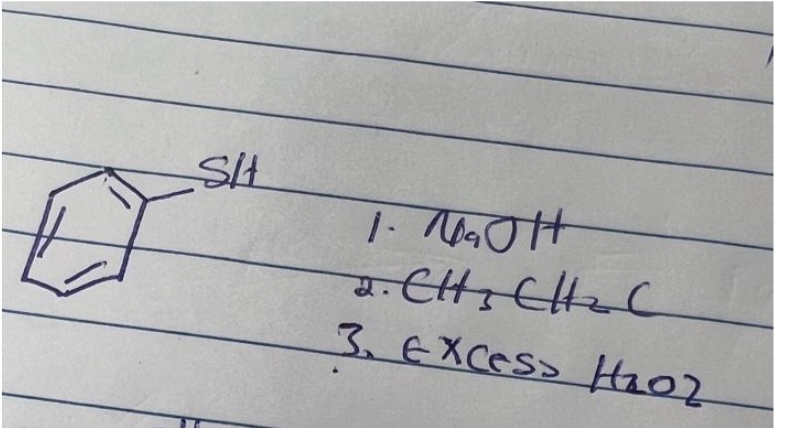 SH
1. NaOH
2. CH3CH2C
3. Excess H2O2